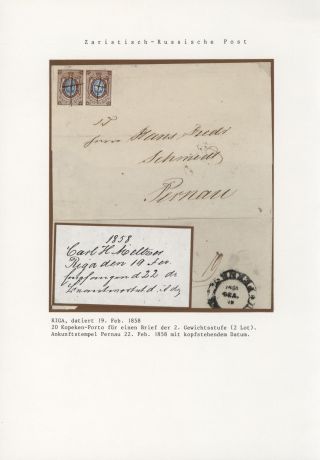 Zaristisch-Russische Post
Herrn Hans Diedr
Schmidt
Pernau
1858
Carl H.
Riga den 19
empfangen d 22
RIGA, datiert 19. Feb. 1858
20 Kopeken-Porto für einen Brief der 2. Gewichtsstufe (2 Lot).
Ankunftstempel Pernau 22. Feb. 1858 mit kopfstehendem Datum.